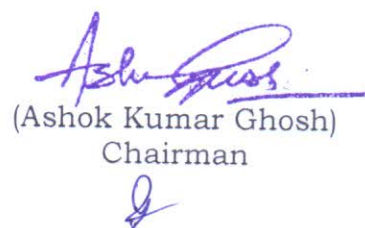 (Ashok Kumar Ghosh)
Chairman